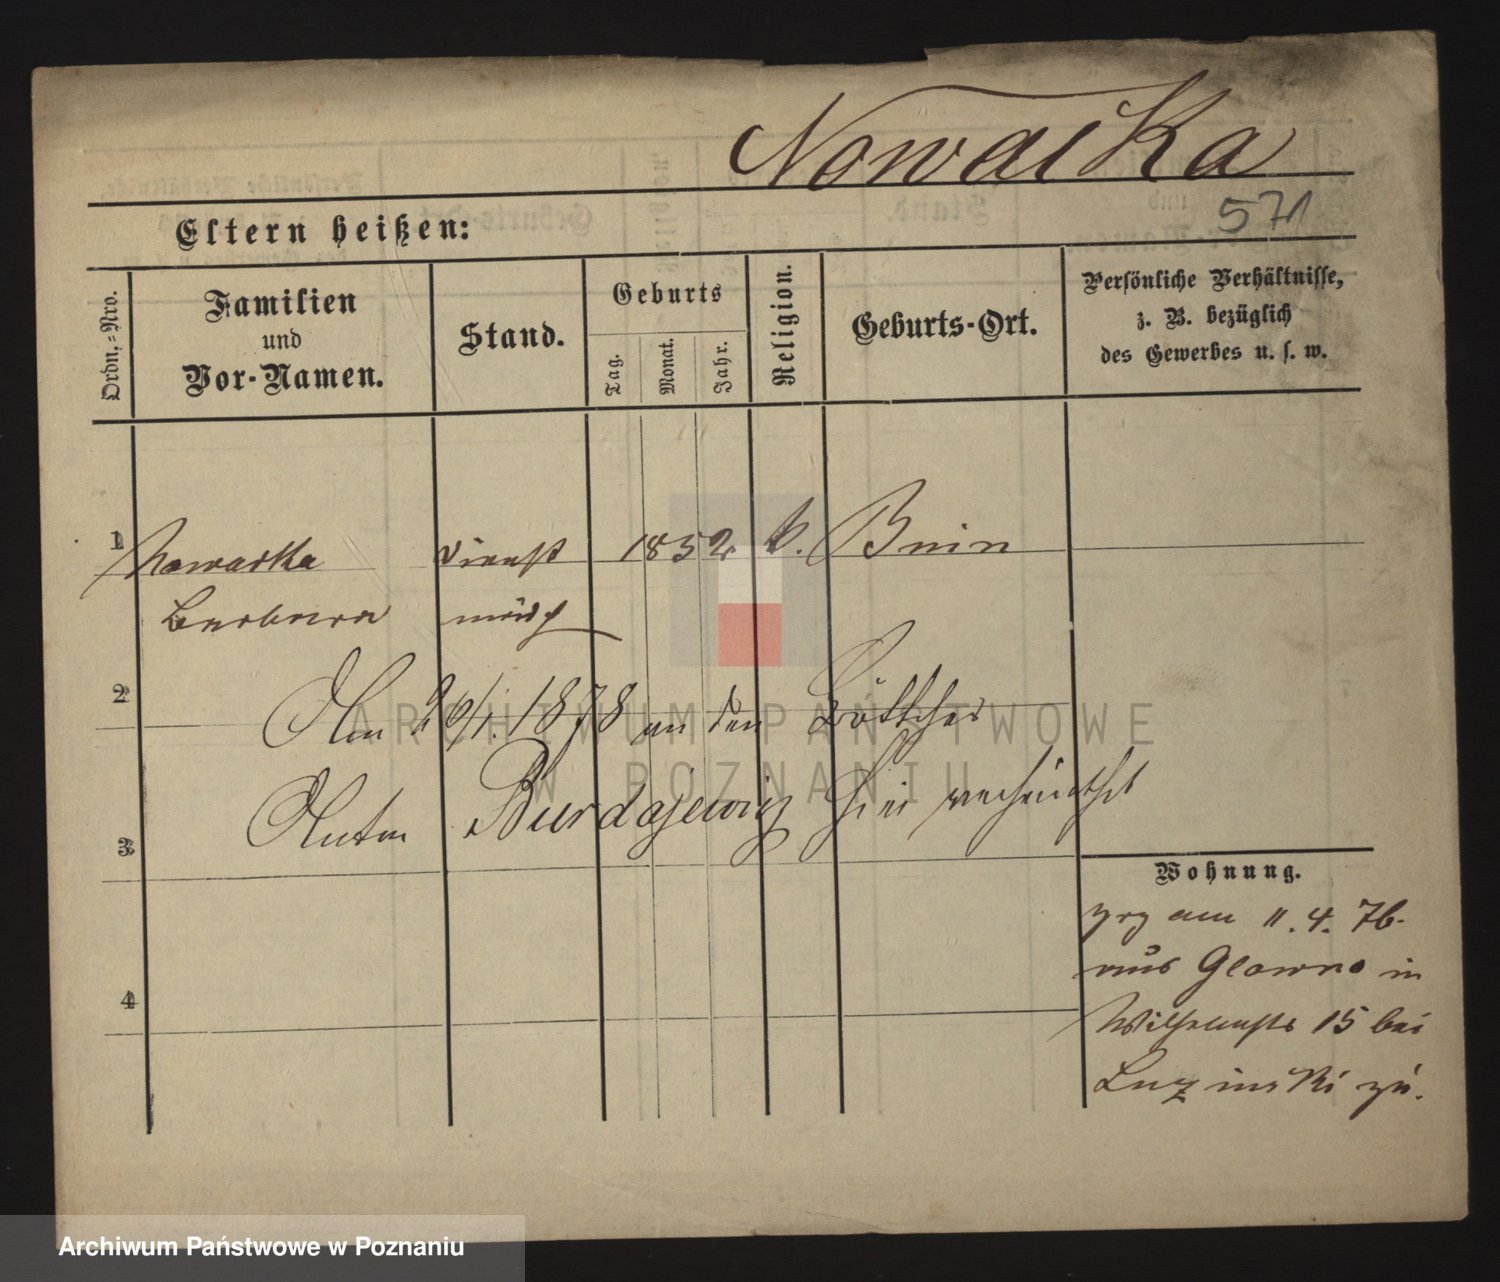 Nowacka
571
Eltern heißen:
Ordn.=Nro.
Familien
und
Vor-Namen.
Stand.
Geburts
Tag.
Monat.
Jahr.
Religion.
Geburts-Ort.
Persönliche Verhältnisse,
z. B. bezüglich
des Gewerbes u. s. w.
1 Nowacka Dienst 1852 k. Bnin
Barbara mädch
2
Am 26/1. 1878 an den Böttcher
Anton Burdajewicz hier verheirathet
3
Wohnung.
zog am 11.4.76.
aus Glowno in
Wilhelmstr 15 bei
Luzinski zu.
4
ARCHIWUM PAŃSTWOWE
W POZNANIU
Archiwum Państwowe w Poznaniu